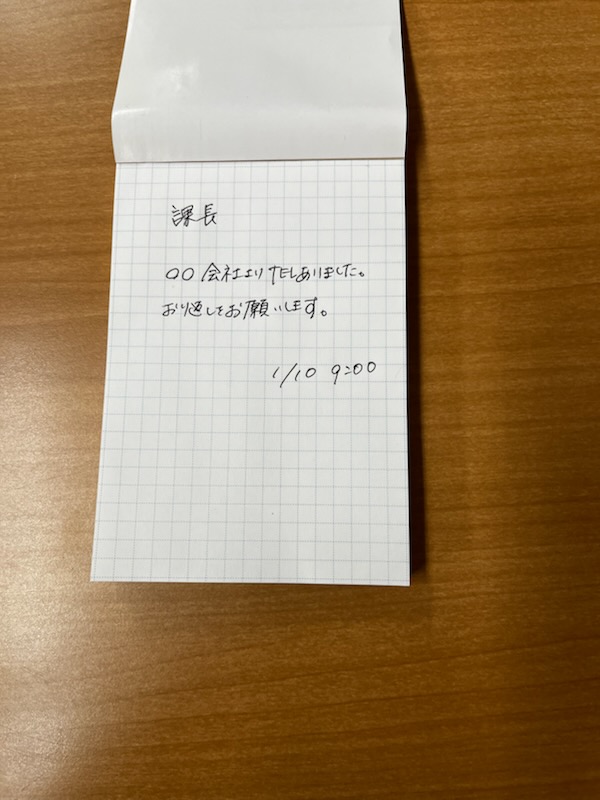 課長
〇〇会社よりTELありました。
おり返しをお願いします。
1/10 9:00